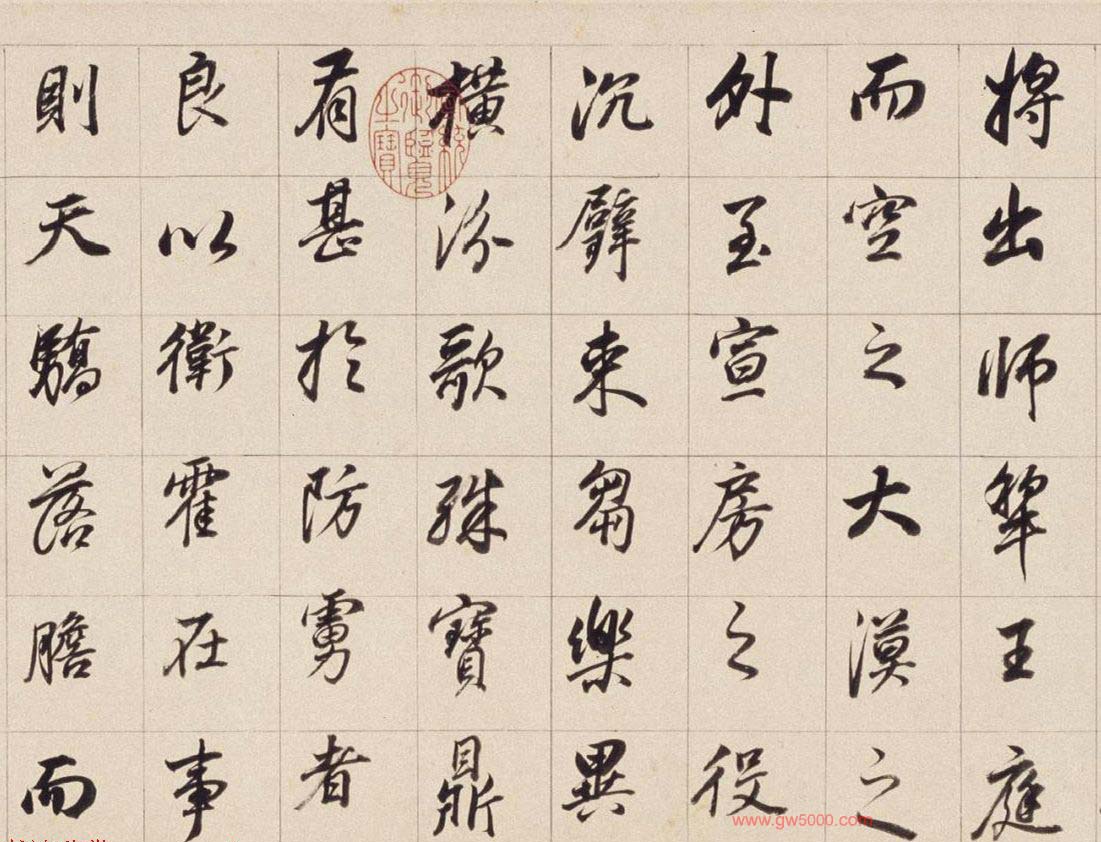 將出師犂王庭
而空之大漠之
外至宣房之役
沉璧束芻樂異
橫汾歌殊寶鼎
有甚於防雩者
良以衛霍在事
則天驕落膽而
宣統御覽之寶
www.gw5000.com